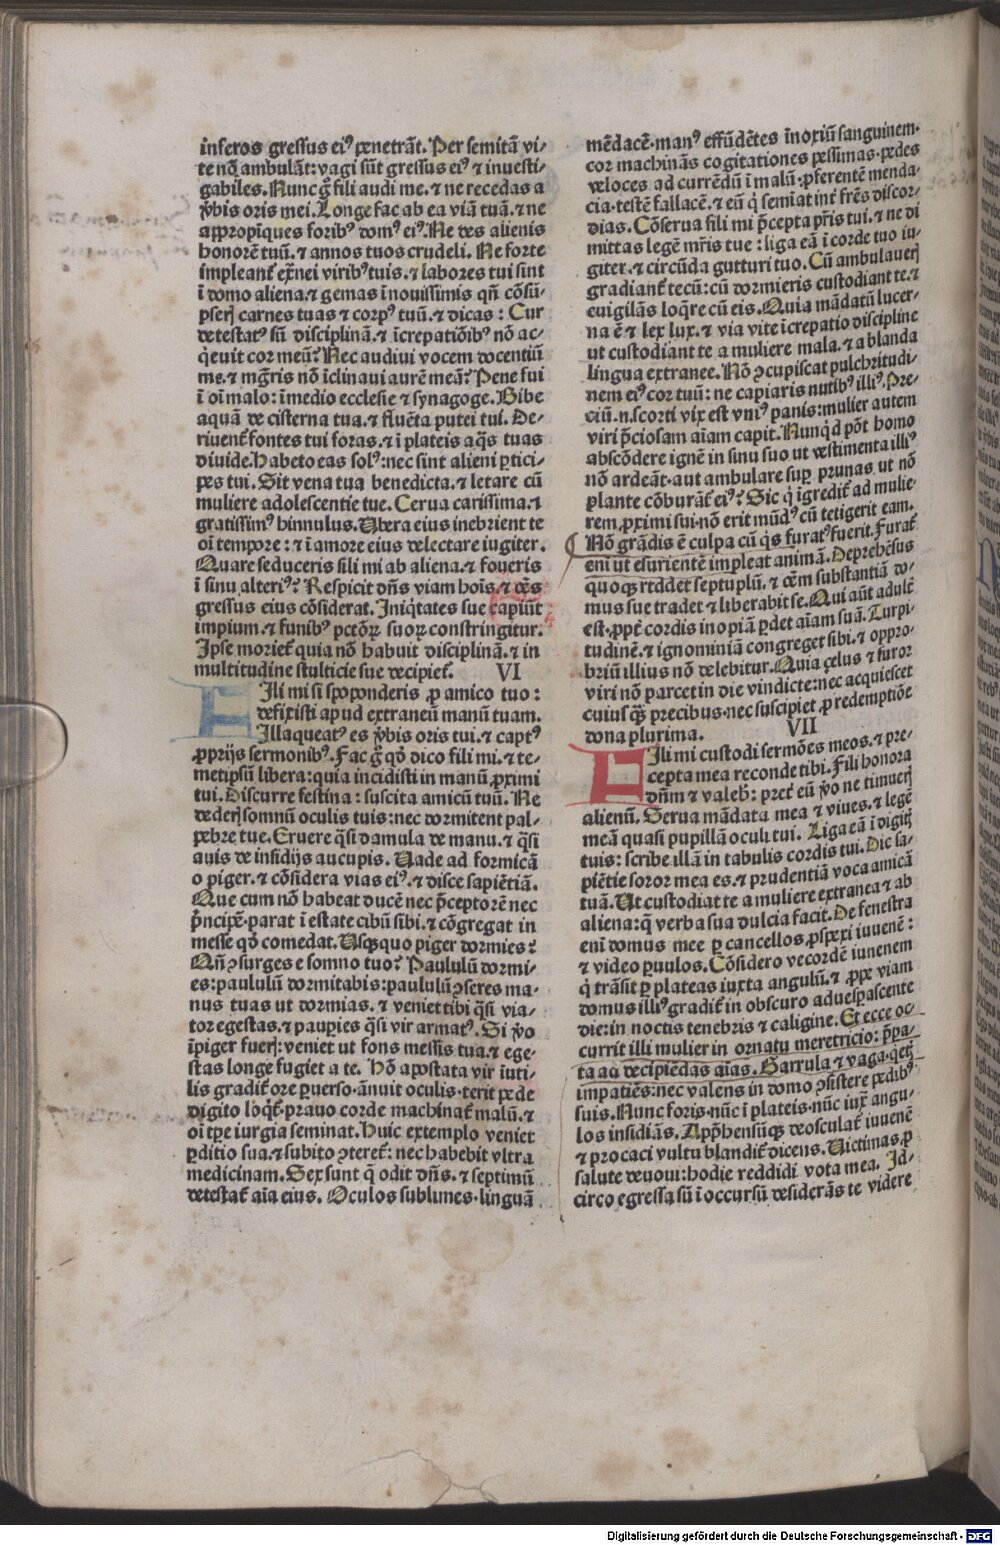 inferos gressus eiꝰ penetrāt. Per semitā vi-
te nō ambulāt: vagi sūt gressus eiꝰ ⁊ inuesti-
gabiles. Nunc gͦ fili audi me. ⁊ ne recedas a
v̓bis oris mei. Longe fac ab ea viā tuā. ⁊ ne
appropīques foribꝰ domꝰ eiꝰ. Ne des alienis
honorē tuū. ⁊ annos tuos crudeli. Ne forte
impleant̄ ext̓nei viribꝰ tuis. ⁊ labores tui sint
ī domo aliena. ⁊ gemas ī nouissimis qn̄ cōsū-
pserꝭ carnes tuas ⁊ corpꝰ tuū. ⁊ dicas: Cur
detestatꝰ sū disciplinā. ⁊ īcrepatiōibꝰ nō ac-
q̇euit cor meū? Nec audiui vocem docentiū
me. ⁊ mg̓ris nō īclinaui aurē meā? Pene fui
ī oī malo: ī medio ecclesie ⁊ synagoge. Bibe
aquā de cisterna tua. ⁊ fluēta putei tui. De-
riuent̄ fontes tui foras. ⁊ ī plateis aq̄s tuas
diuide. Habeto eas solꝰ: nec sint alieni ꝑtici-
pes tui. Sit vena tua benedicta. ⁊ letare cū
muliere adolescentie tue. Cerua carissima. ⁊
gratissimꝰ hinnulus. Ubera eius inebrient te
oī tempore: ⁊ ī amore eius delectare iugiter.
Quare seduceris fili mi ab aliena. ⁊ foueris
ī sinu alteriꝰ? Respicit dn̄s viam hoīs. ⁊ oēs
gressus eius cōsiderat. Iniq̇tates sue capiūt
impium. ⁊ funibꝰ pctōꝝ suoꝝ constringitur.
Ipse moriet̄ quia nō habuit disciplinā. ⁊ in
multitudine stulticie sue decipiet̄. VI
Fili mi si spoponderis ꝓ amico tuo:
defixisti apud extraneū manū tuam.
Illaqueatꝰ es v̓bis oris tui. ⁊ captꝰ
ꝓprijs sermonibꝰ. Fac gͦ qđ dico fili mi. ⁊ te-
metipsū libera: quia incidisti in manū ꝓximi
tui. Discurre festina: suscita amicū tuū. Ne
dederꝭ somnū oculis tuis: nec dormitent pal-
pebre tue. Eruere q̄si damula de manu. ⁊ q̄si
auis de insidijs aucupis. Uade ad formicā
o piger. ⁊ cōsidera vias eiꝰ. ⁊ disce sapiētiā.
Que cum nō habeat ducē nec p̄ceptorē nec
p̓ncipē. parat ī estate cibū sibi. ⁊ cōgregat in
messe qđ comedat. Usq̨quo piger dormies?
Qn̄ ꝯsurges e somno tuo? Paululū dormi-
es: paululū dormitabis: paululū ꝯseres ma-
nus tuas ut dormias. ⁊ veniet tibi q̄si via-
tor egestas. ⁊ pauꝑies q̄si vir armatꝰ. Si v̓o
īpiger fuerꝭ: veniet ut fons messis tua. ⁊ ege-
stas longe fugiet a te. Hō apostata vir īuti-
lis gradit̄ ore ꝑuerso. ānuit oculis. terit pede
digito loq̇t̄. prauo corde machinat̄ malū. ⁊
oī tꝑe iurgia seminat. Huic extemplo veniet
ꝑditio sua. ⁊ subito ꝯteret̄: nec habebit vltra
medicinam. Sex sunt q̄ odit dn̄s. ⁊ septimū
detestat̄ aīa eius. Oculos sublimes. linguā
mēdacē. manꝰ effūdētes īnoxiū sanguinem.
cor machinās cogitationes pessimas. pedes
veloces ad currēdū ī malū: ꝓferentē menda-
cia. testē fallacē. ⁊ eū q̇ semīat int̓ fr̄es discor-
dias. Cōserua fili mi p̄cepta pr̄is tui. ⁊ ne di
mittas legē mr̄is tue: liga eā ī corde tuo iu-
giter. ⁊ circūda gutturi tuo. Cū ambulauerꝭ
gradiant̄ tecū: cū dormieris custodiant te. ⁊
euigilās loq̄re cū eis. Quia mādatū lucer-
na ē ⁊ lex lux. ⁊ via vite īcrepatio discipline
ut custodiant te a muliere mala. ⁊ a blanda
lingua extranee. Nō ꝯcupiscat pulchritudi-
nem eiꝰ cor tuū: ne capiaris nutibꝰ illiꝰ. Pre-
ciū .n. scorti vix est vniꝰ panis: mulier autem
viri p̄ciosam aīam capit. Nunq̇d pōt homo
abscōdere ignē in sinu suo ut vestimenta illiꝰ
nō ardeāt. aut ambulare suꝑ prunas ut nō
plante cōburāt̄ eiꝰ? Sic q̇ īgredit̄ ad mulie-
rem ꝓximi sui. nō erit mūdꝰ cū tetigerit eam.
Nō grādis ē culpa cū q̇s furatꝰ fuerit. Furat̄
eni ut esurientē impleat animā. Deprehēsus
quoq̨ reddet septuplū. ⁊ oēm substantiā do-
mus sue tradet ⁊ liberabit se. Qui aūt adult̓
est. ꝓpt̓ cordis inopiā ꝑdet aīam suā. Turpi-
tudinē. ⁊ ignominiā congreget sibi. ⁊ oppro-
briū illius nō delebitur. Quia çelus ⁊ furor
viri nō parcet in die vindicte: nec acquiescet
cuiusq̨ precibus. nec suscipiet ꝓ redemptiōe
dona plurima. VII
Fili mi custodi sermōes meos. ⁊ pre-
cepta mea reconde tibi. Fili honora
dn̄m ⁊ valeb̄: pret̓ eū v̓o ne timuerꝭ
alienū. Serua mādata mea ⁊ viues. ⁊ legē
meā quasi pupillā oculi tui. Liga eā ī digitꝭ
tuis: scribe illā in tabulis cordis tui. Dic sa-
piētie soror mea es. ⁊ prudentiā voca amicā
tuā. Ut custodiat te a muliere extranea ⁊ ab
aliena: q̄ verba sua dulcia facit. De fenestra
enī domus mee ꝑ cancellos ꝓspexi iuuenē:
⁊ video ꝑuulos. Cōsidero vecordē iuuenem
q̇ trāsit ꝑ plateas iuxta angulū. ⁊ ꝓpe viam
domus illiꝰ gradit̄ in obscuro aduesꝑascente
die: in noctis tenebris ⁊ caligine. Et ecce oc-
currit illi mulier in ornatu meretricio: p̄pa-
ta ad decipiēdas aīas. Garrula ⁊ vaga. q̇etꝭ
impatiēs: nec valens in domo ꝯsistere pedibꝰ
suis. Nunc foris. nūc ī plateis. nūc iux̄ angu-
los insidiās. Appͥhensūq̨ deosculat̄ iuuenē
⁊ procaci vultu blandit̄ dicens. Uictimas ꝓ
salute deuoui: hodie reddidi vota mea. Id-
circo egressa sū ī occursū desiderās te videre
Digitalisierung gefördert durch die Deutsche Forschungsgemeinschaft - DFG